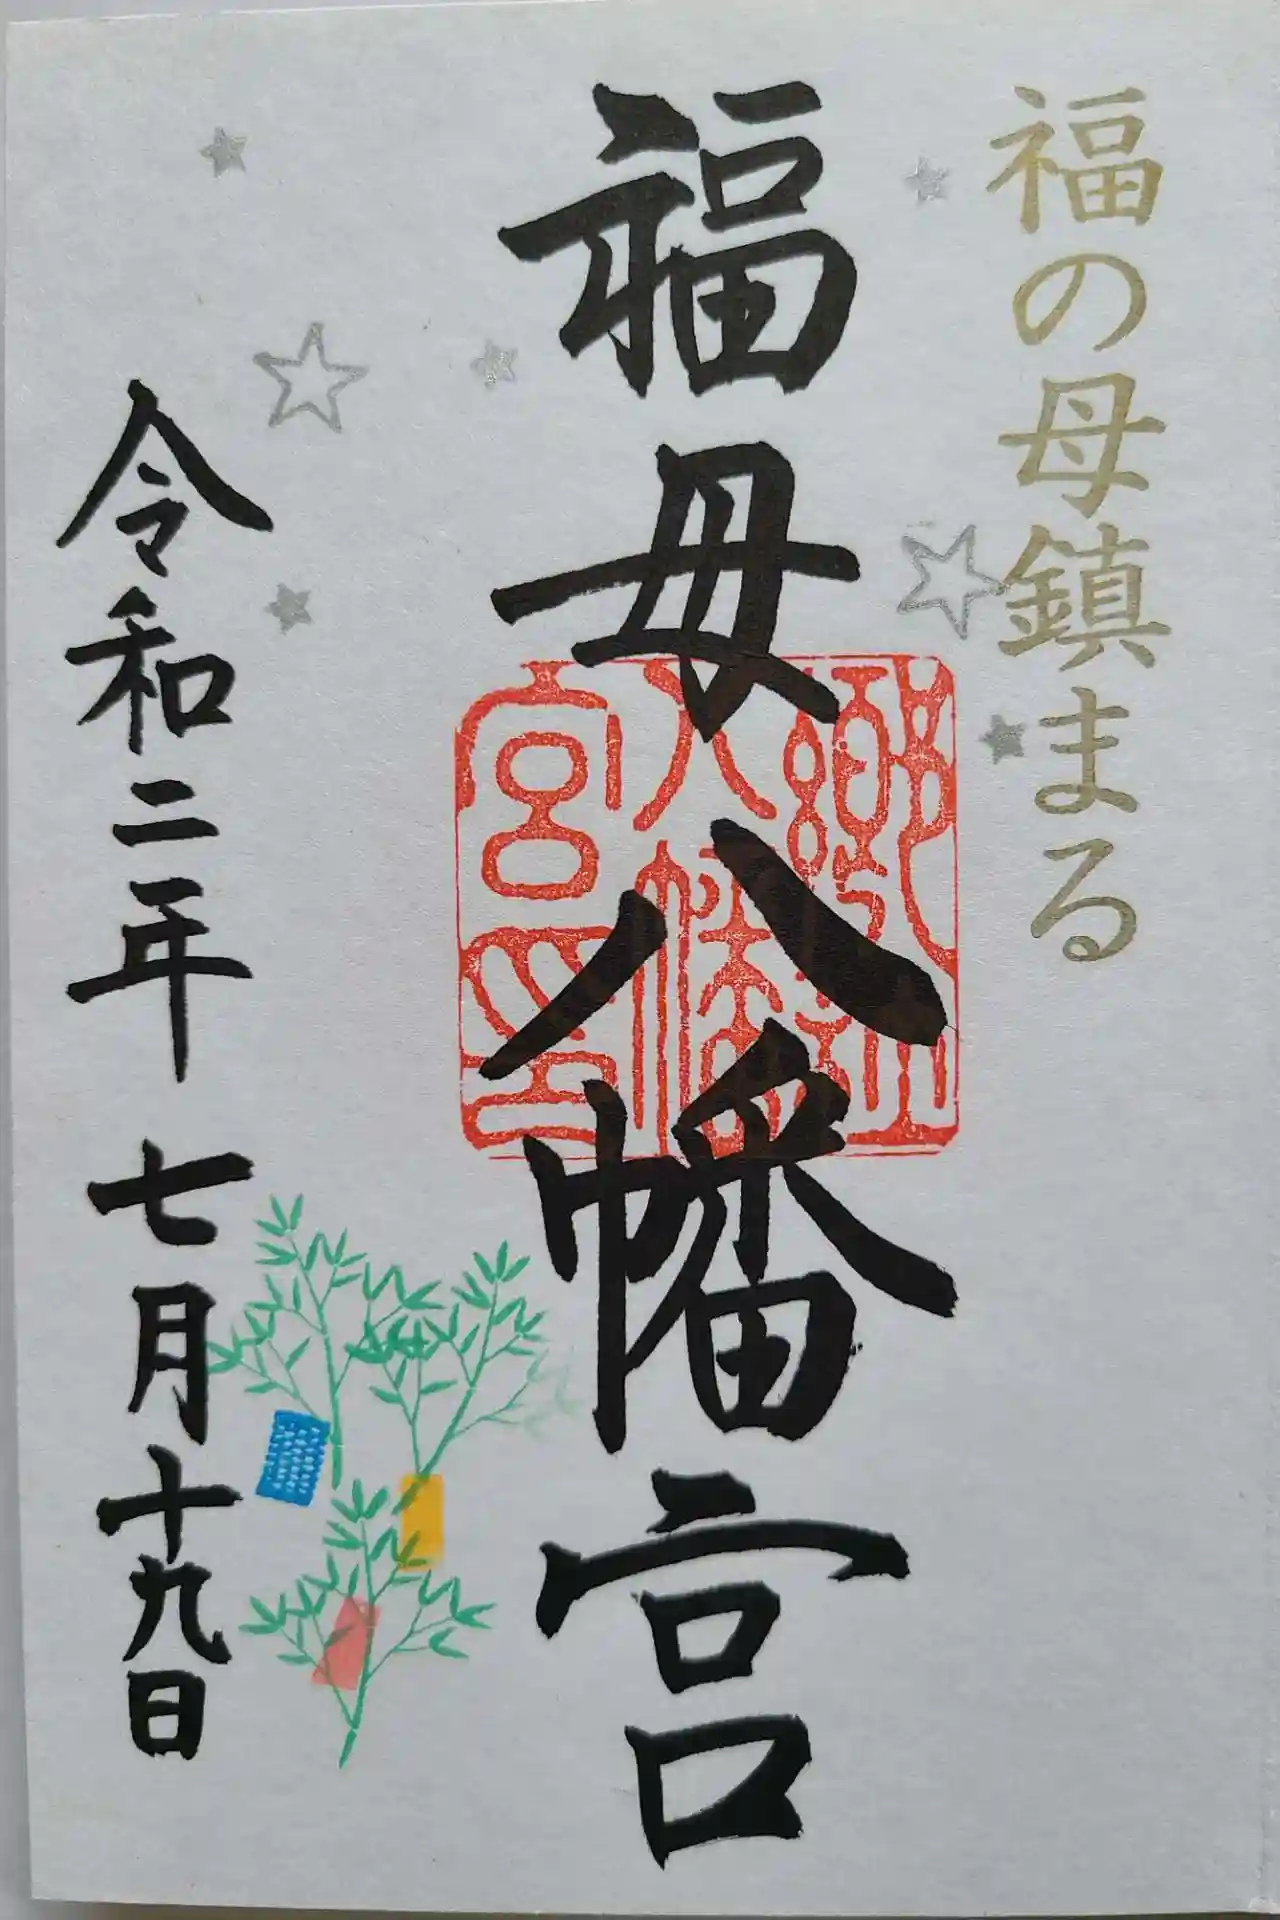 福の母鎮まる
福母八幡宮
令和二年 七月十九日